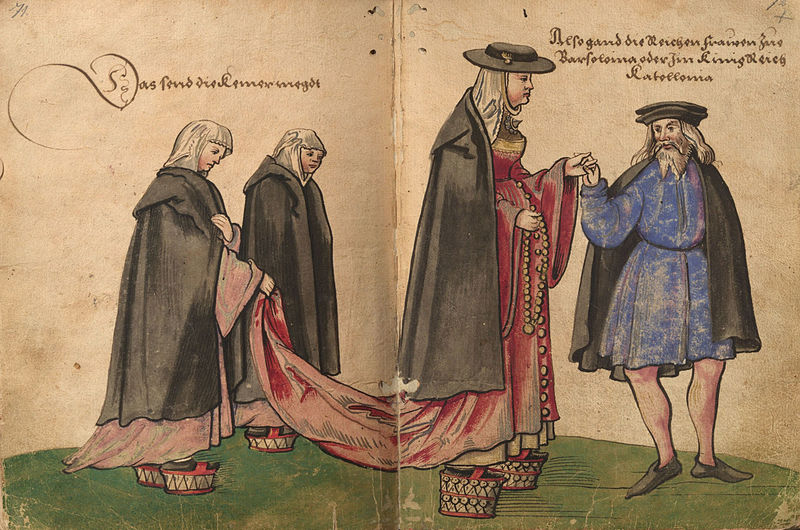 71
Das send die Kemer megdt
Also gand die Reichen frawen zue
Barseloma oder Im Kinig Reich
Katelloma